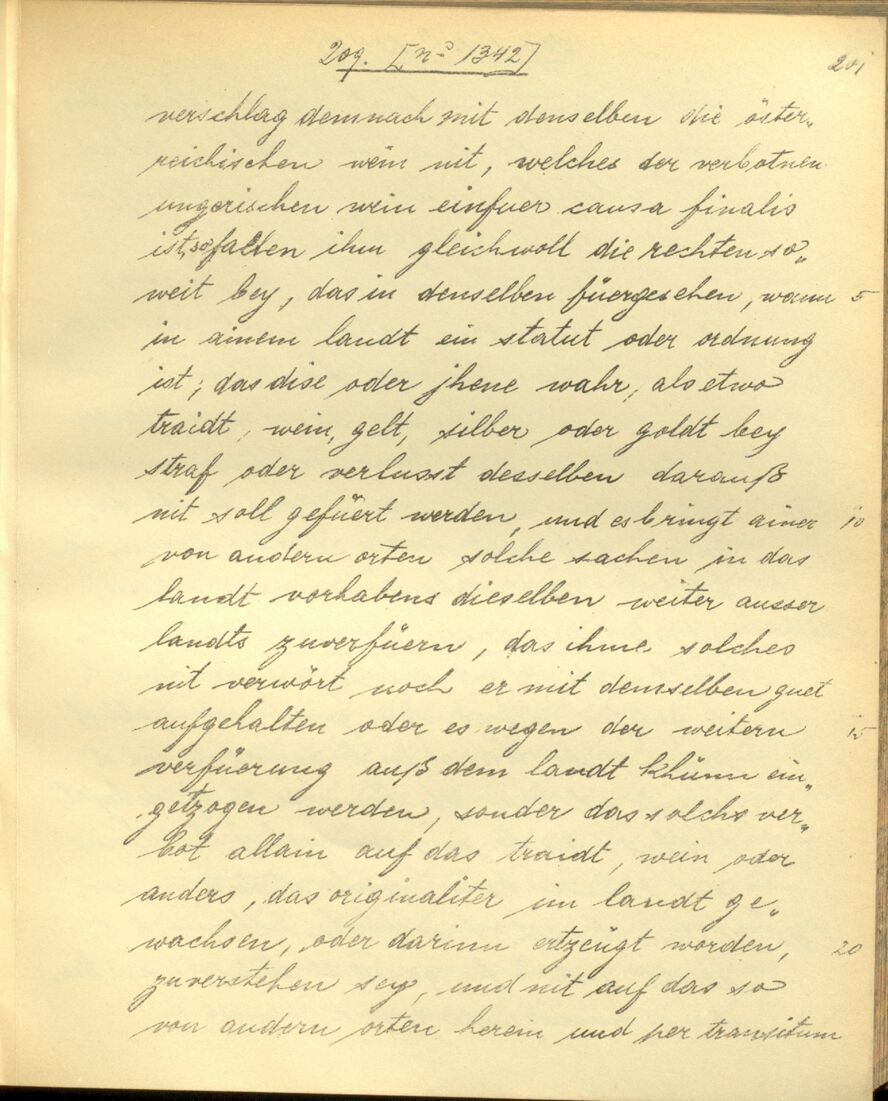 209. [nº 1342]
201
verschlag demnach mit denselben die öster„
reichischen wein nit, welches der verbotnen
ungerischen wein einfuer causa finalis
ist, so fallen ihm gleichwoll die rechten so„
weit bey, das in denselben füergesehen, wann 5
in ainem landt ein statut oder ordnung
ist, das dise oder jhene wahr, als etwo
traidt, wein, gelt, silber oder goldt bey
straf oder verlusst desselben darauß
nit soll gefüert werden, und es bringt ainer 10
von andern orten solche sachen in das
landt vorhabens dieselben weiter ausser
landts zuverfüern, das ihme solches
nit verwört noch er mit demselben guet
aufgehalten oder es wegen der weitern 15
verfüerung auß dem landt khünn ein„
getzogen werden, sonder das solchs ver„
bot allain auf das traidt, wein oder
anders, das originaliter im landt ge„
wachsen, oder darinn ertzeügt worden, 20
zuverstehen sey, und nit auf das so
von andern orten herein und per transitum